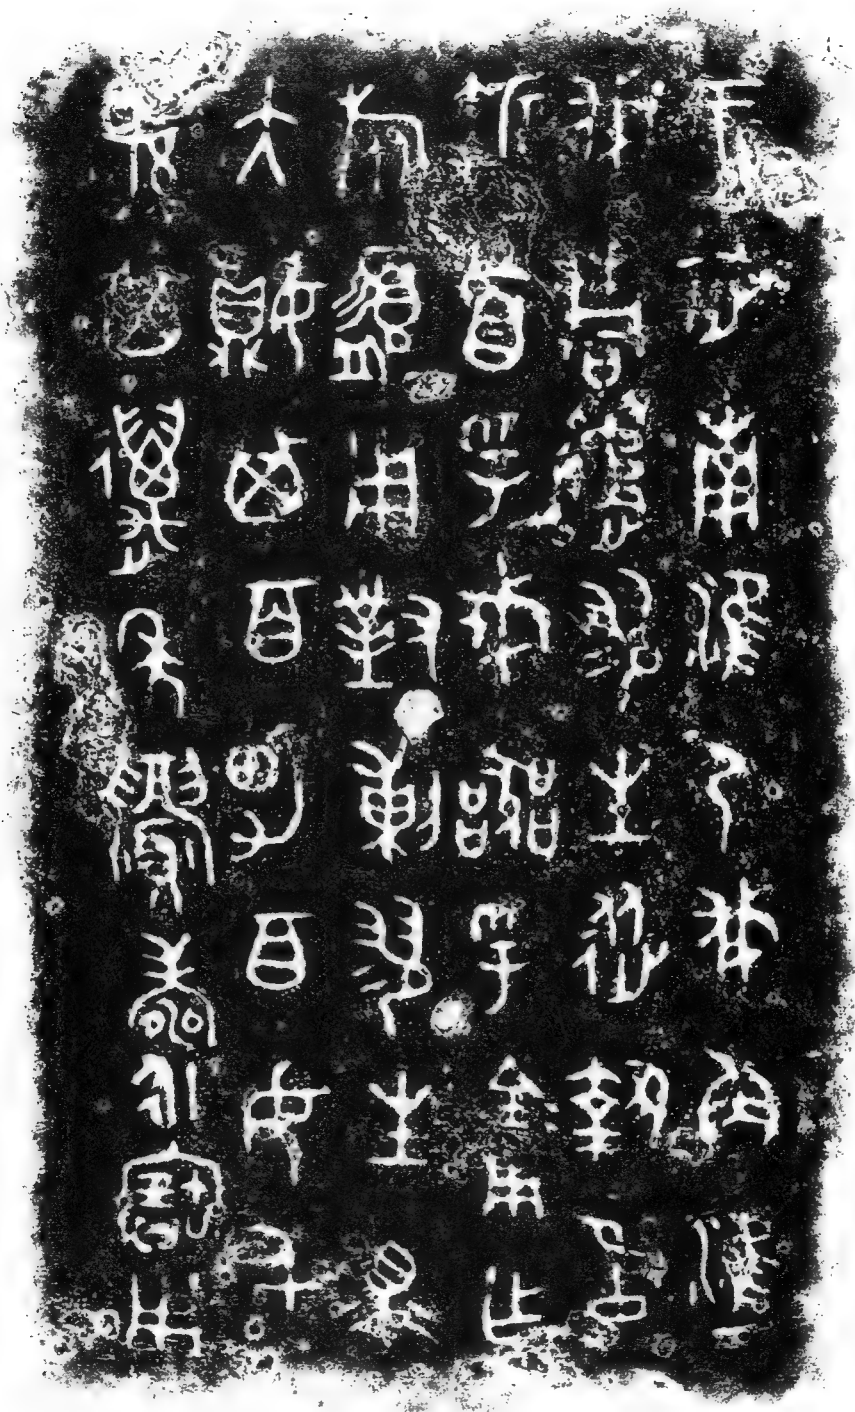 王征南淮夷伐角津
伐桐遹翏生從執訊
折首孚戎器孚金用乍
旅盨用對剌翏生眔
大妘其百男百女千
孫其萬年眉壽永寶用